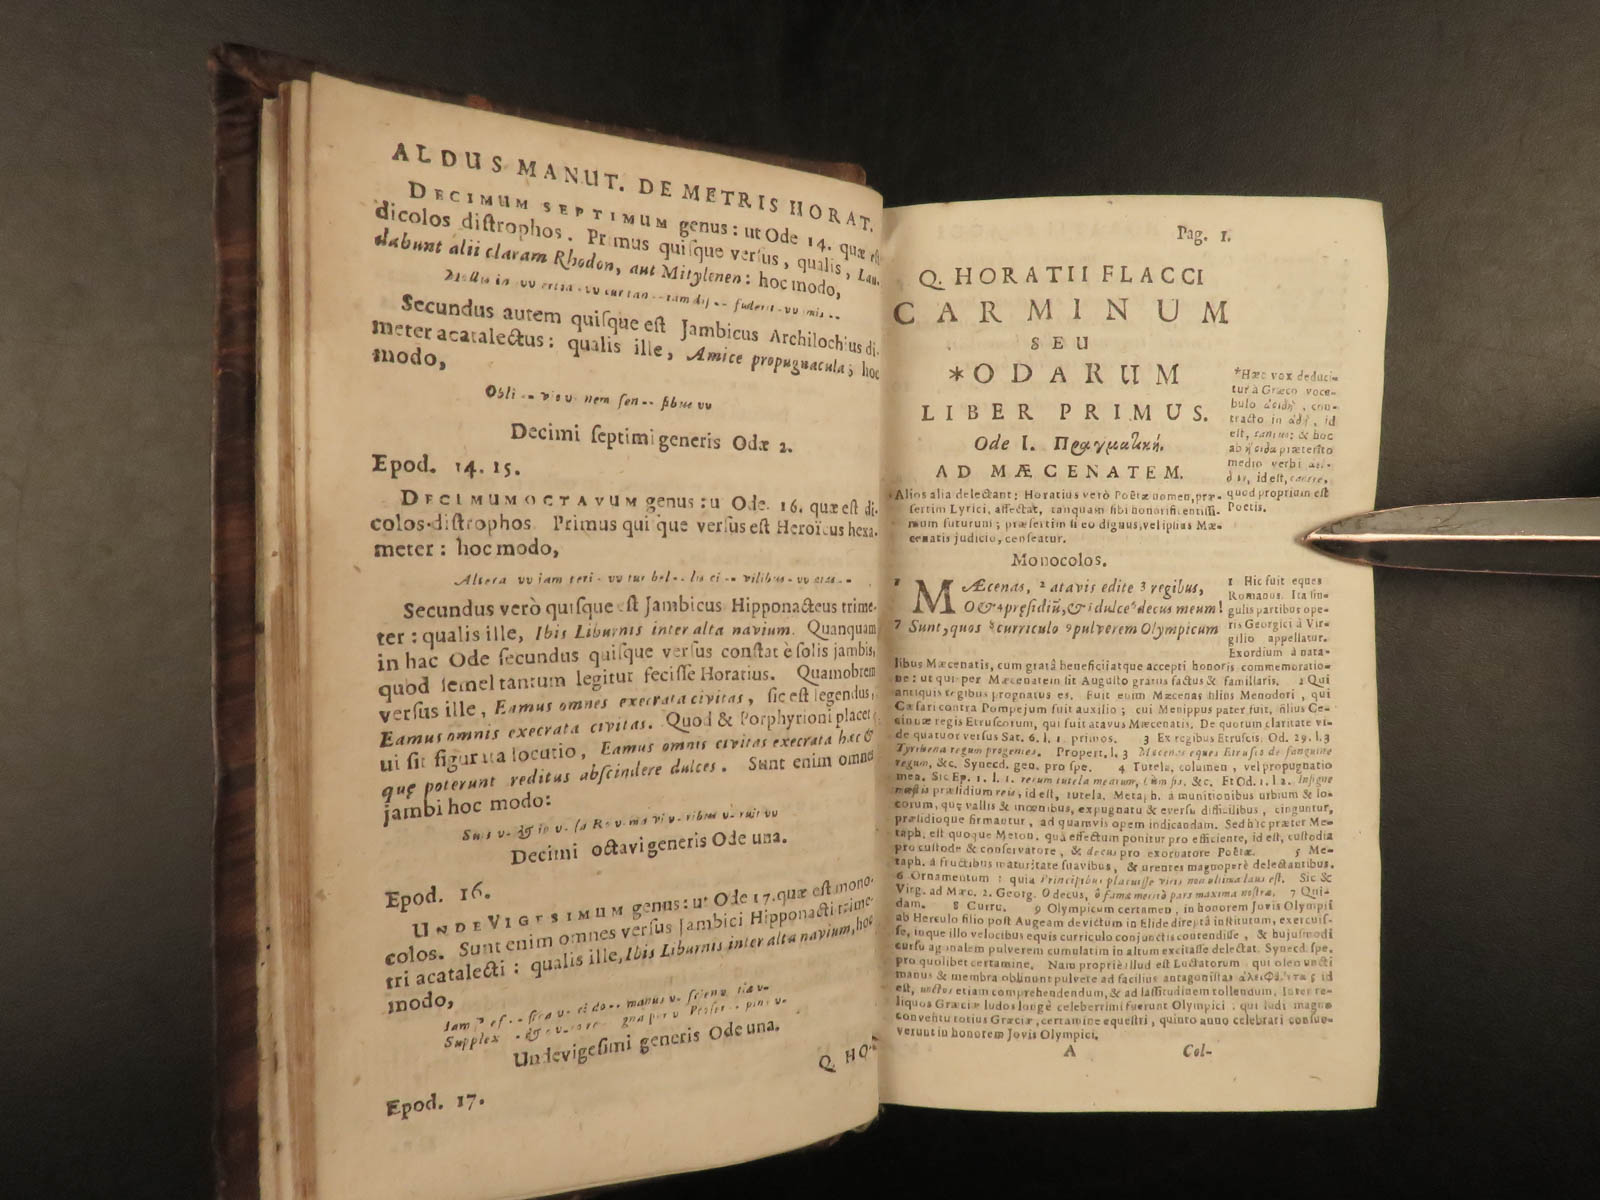 ALDUS MANUT. DE METRIS HORAT.
DECIMUM SEPTIMUM genus: ut Ode 14. quæ est
dicolos distrophos. Primus quisque versus, qualis, Lau-
dabunt alii claram Rhodon, aut Mitylenen: hoc modo,
Secundus autem quisque est Jambicus Archilochius di-
meter acatalectus: qualis ille, Amice propugnacula; hoc
modo,
Obli -- vio u nem sen -- sibus uu
Decimi septimi generis Odæ 2.
Epod. 14. 15.
DECIMUM OCTAVUM genus: u Ode. 16. quæ est di-
colos distrophos. Primus quisque versus est Heroïcus hexa-
meter: hoc modo,
Altera uu jam teri - uu tur bel -- lis ci -- vilibus - uu ætas --
Secundus verò quisque est Jambicus Hipponacteus trime-
ter: qualis ille, Ibis Liburnis inter alta navium. Quanquam
in hac Ode secundus quisque versus constat è solis jambis,
quod semel tantum legitur fecisse Horatius. Quamobrem
versus ille, Eamus omnes execrata civitas, sic est legendus,
Eamus omnis execrata civitas. Quod & Porphyrioni placet;
ui sit figurata locutio, Eamus omnis civitas execrata hæc &
quę poterunt reditus abscindere dulces. Sunt enim omnes
jambi hoc modo:
Suis u- & ip u- sa Ro u- ma vi u- ribus u- ruit uu
Decimi octavi generis Ode una.
Epod. 16.
UNDEVIGESIMUM genus: ut Ode 17. quæ est mono-
colos. Sunt enim omnes versus Jambici Hipponacti trime-
tri acatalecti: qualis ille, Ibis Liburnis inter alta navium, hoc
modo,
Undevigesimi generis Ode una.
Q. HO-
Epod. 17.
Pag. 1.
Q. HORATII FLACCI
CARMINUM
SEU
*ODARUM
LIBER PRIMUS.
Ode I. Πραγματική.
AD MÆCENATEM.
*Hæc vox deduci-
tur à Græco voce-
bulo ἀοιδὴ, con-
tracto in ᾠδὴ, id
est, cantus; & hoc
ab ἤοιδα præterito
medio verbi ἀεί-
δω, id est, canere,
quod proprium est
Poetis.
Alios alia delectant: Horatius verò Poëtæ nomen, præ-
sertim Lyrici, affectat, tanquam sibi honorificentissi-
mum futurum; præsertim si eo dignus, vel ipsius Mæ-
cenatis judicio, censeatur.
Monocolos.
1 MÆcenas, 2 atavis edite 3 regibus,
O & 4 pręsidiū, & 5 dulce 6 decus meum!
7 Sunt, quos 8 curriculo 9 pulverem Olympicum
1 Hic fuit eques
Romanus. Ita sin-
gulis partibus ope-
ris Georgici à Vir-
gilio appellatur.
Exordium à nata-
libus Mæcenatis, cum gratâ beneficii atque accepti honoris commemoratio-
ne: ut qui per Mæcenatem sit Augusto gratus factus & familiaris. 2 Qui
antiquis regibus prognatus es. Fuit enim Mæcenas filius Menodori, qui
Cæsari contra Pompejum fuit auxilio; cui Menippus pater fuit, filius Ce-
cinnæ regis Etruscorum, qui fuit atavus Mæcenatis. De quorum claritate vi-
de quatuor versus Sat. 6. l. 1. primos. 3 Ex regibus Etruscis. Od. 29. l. 3
Tyrrhena regum progenies. Propert. l. 3 Mæcenas eques Etrusco de sanguine
regum, &c. Synecd. gen. pro spe. 4 Tutela, columen, vel propugnatio
mea. Sic Ep. 1. l. 1. rerum tutela mearum, Cum sis, &c. Et Od. 1. l. 2. Insigne
mœstis præsidium reis, id est, tutela. Metaph. à munitionibus urbium & lo-
corum, quę vallis & mœnibus, expugnatu & eversu difficilibus, cinguntur,
præsidioque firmantur, ad quamvis opem indicandam. Sed hîc præter Me-
taph. est quoque Meton. quâ effectum ponitur pro efficiente, id est, custodia
pro custode & conservatore, & decus pro exornatore Poëtæ. 5 Me-
taph. à fructibus maturitate suavibus, & urentes magnoperè delectantibus.
6 Ornamentum: quia Principibus placuisse viris non ultima laus est. Sic &
Virg. ad Mæc. 2. Georg. O decus, ô famæ meritò pars maxima nostræ. 7 Qui-
dam. 8 Curru. 9 Olympicum certamen, in honorem Jovis Olympii
ab Herculo filio post Augeam devictum in Elide direptâ institutum, exercuis-
se, inque illo velocibus equis curriculo conjunctis contendisse, & hujusmodi
cursu agonalem pulverem cumulatim in altum excitasse delectat. Synecd. spe.
pro quolibet certamine. Nam propriè illud est Luctatorum, qui oleo uncti
manus & membra oblinunt pulvere ad facilius antagonistas id
est, unctus etiam comprehendendum, & ad lassitudinem tollendum. Inter re-
liquos Græciæ ludos longè celeberrimi fuerunt Olympici, qui ludi magno
conventu totius Græciæ, certamine equestri, quinto anno celebrari consue-
verunt in honorem Jovis Olympici.
A
Col-